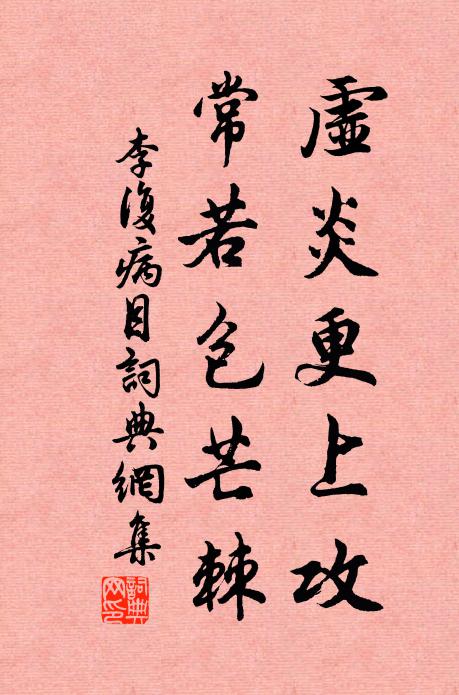 虛炎更上攻
常若包芒棘
李復病目詞典網集
詞典網印